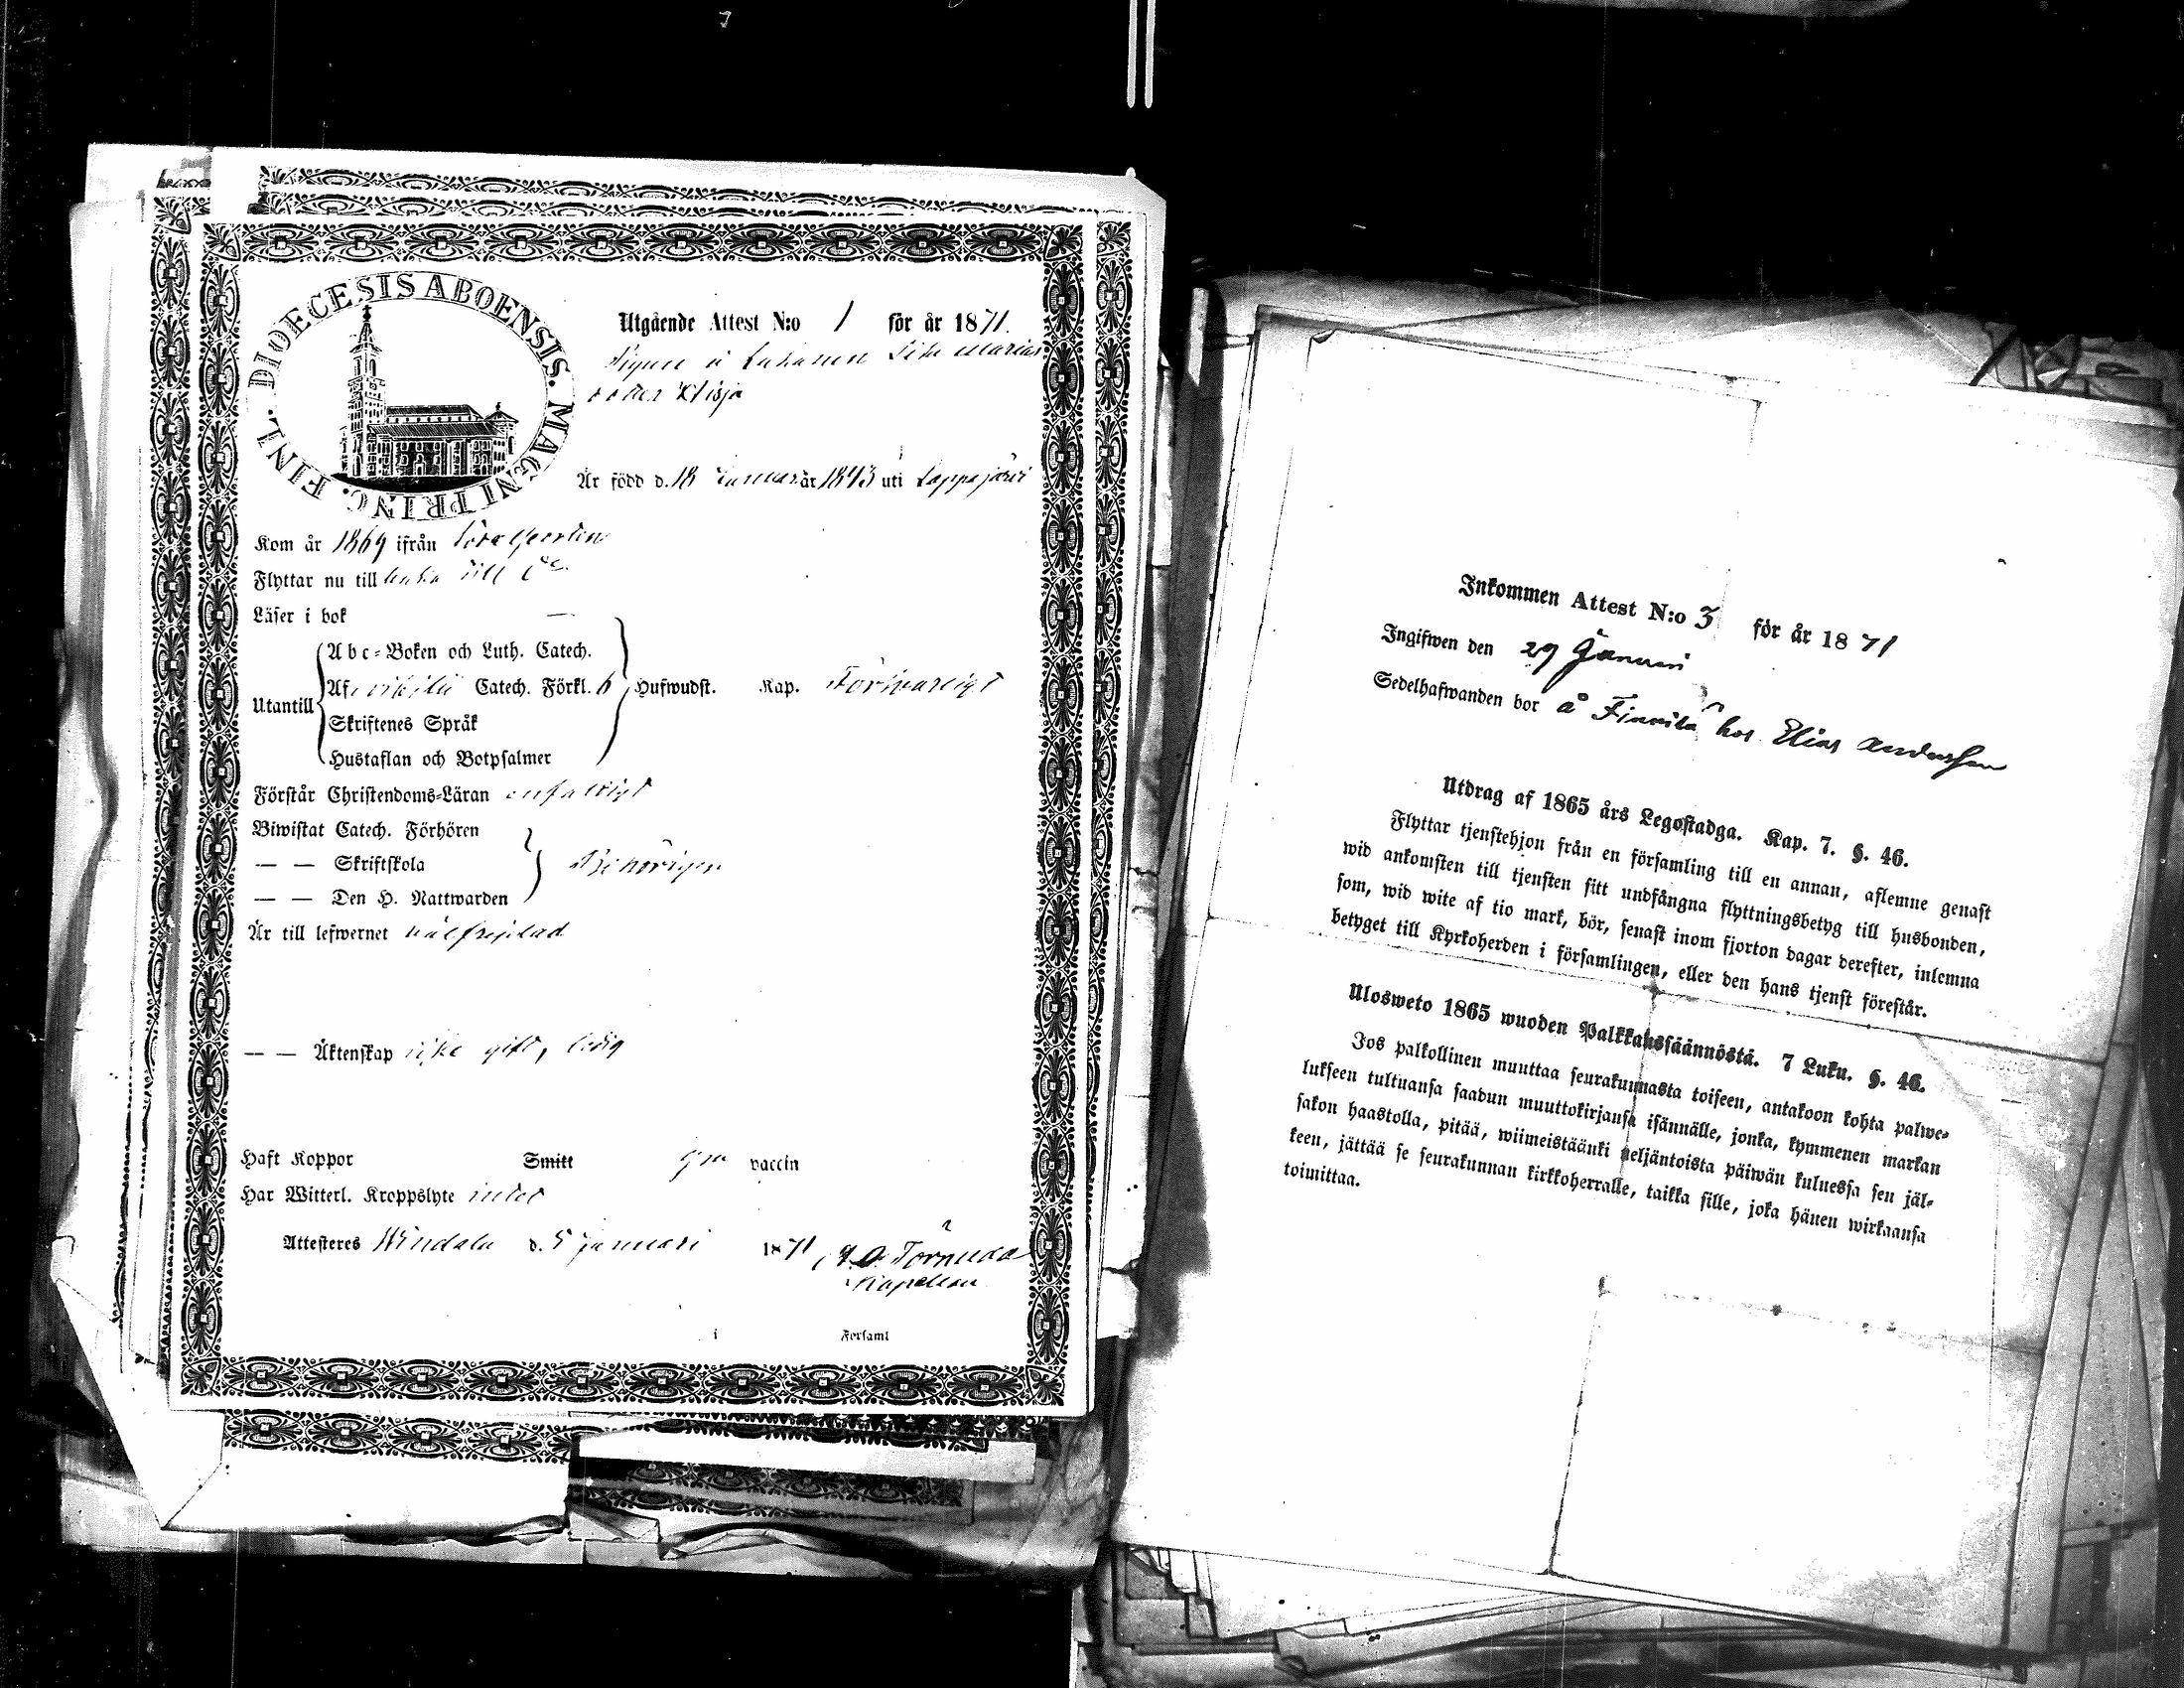 DIOECESIS ABOENSIS. MAGNI PRINC. FINL.
Utgående Attest N:o 1 för år 1871.
Pigan å
Är född d. 18 Januari år 1843 uti Lappajärvi
Kom år 1869 ifrån
Flyttar nu till
Läser i bok —
Utantill
Abc-Boken och Luth. Catech.
Af Catech. Förkl. 6 Hufwudst. Kap. Försvarligt
Skriftenes Språk
Hustaflan och Botpsalmer
Förstår Christendoms-Läran enfaldigt
Biwistat Catech. Förhören
— — Skriftskola Behörigen
— — Den H. Nattwarden
Är till lefwernet välfrejdad
— — Äktenskap icke gift, ledig
Haft Koppor Smitt gm vaccin
Har Witterl. Kroppslyte intet
Attesteres Windala d. 5 januari 1871
Kapellan
i Forsaml
Inkommen Attest N:o 3 för år 1871
Ingifwen den 29 Januari
Sedelhafwanden bor å Finnilä hos Elias Andersson
Utdrag af 1865 års Legostadga. Kap. 7. §. 46.
Flyttar tjenstehjon från en församling till en annan, aflemne genast
wid ankomsten till tjensten sitt undfångna flyttningsbetyg till husbonden,
som, wid wite af tio mark, bör, senast inom fjorton dagar derefter, inlemna
betyget till Kyrkoherden i församlingen, eller den hans tjenst förestår.
Ulosweto 1865 wuoden Palkkaussäännöstä. 7 Luku. §. 46.
Jos palkollinen muuttaa seurakunnasta toiseen, antakoon kohta palwe-
lukseen tultuansa saadun muuttokirjansa isännälle, jonka, kymmenen markan
sakon haastolla, pitää, wiimeistäänki neljäntoista päiwän kuluessa sen jäl-
keen, jättää se seurakunnan kirkkoherralle, taikka sille, joka hänen wirkaansa
toimittaa.